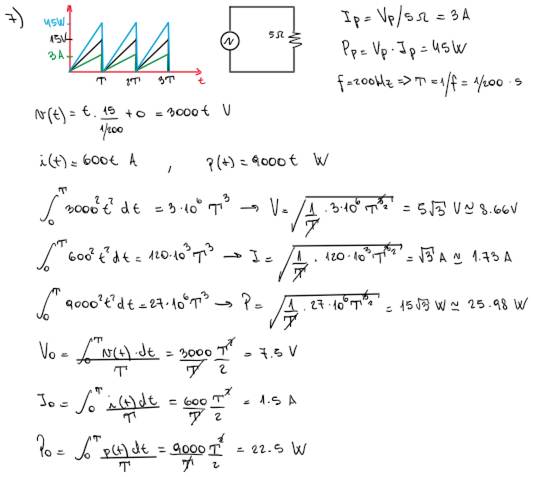 7)
45W
15V
3A
T 2T 3T t
N 5Ω
Ip = Vp/5Ω = 3A
Pp = Vp · Ip = 45W
f = 200Hz => T = 1/f = 1/200 · s
v(t) = t · 15/(1/200) + 0 = 3000t V
i(t) = 600t A , p(t) = 9000t W
∫₀ᵀ 3000² t² dt = 3·10⁶ T³ → V = √(1/T · 3·10⁶ T³²) = 5√3 V ≃ 8.66V
∫₀ᵀ 600² t² dt = 120·10³ T³ → I = √(1/T · 120·10³ T³²) = √3 A ≃ 1.73 A
∫₀ᵀ 9000² t² dt = 27·10⁶ T³ → P = √(1/T · 27·10⁶ T³²) = 15√3 W ≃ 25.98 W
V₀ = ∫₀ᵀ v(t)·dt / T = 3000/T T²/2 = 7.5 V
I₀ = ∫₀ᵀ i(t) dt / T = 600/T T²/2 = 1.5 A
P₀ = ∫₀ᵀ p(t) dt / T = 9000/T T²/2 = 22.5 W